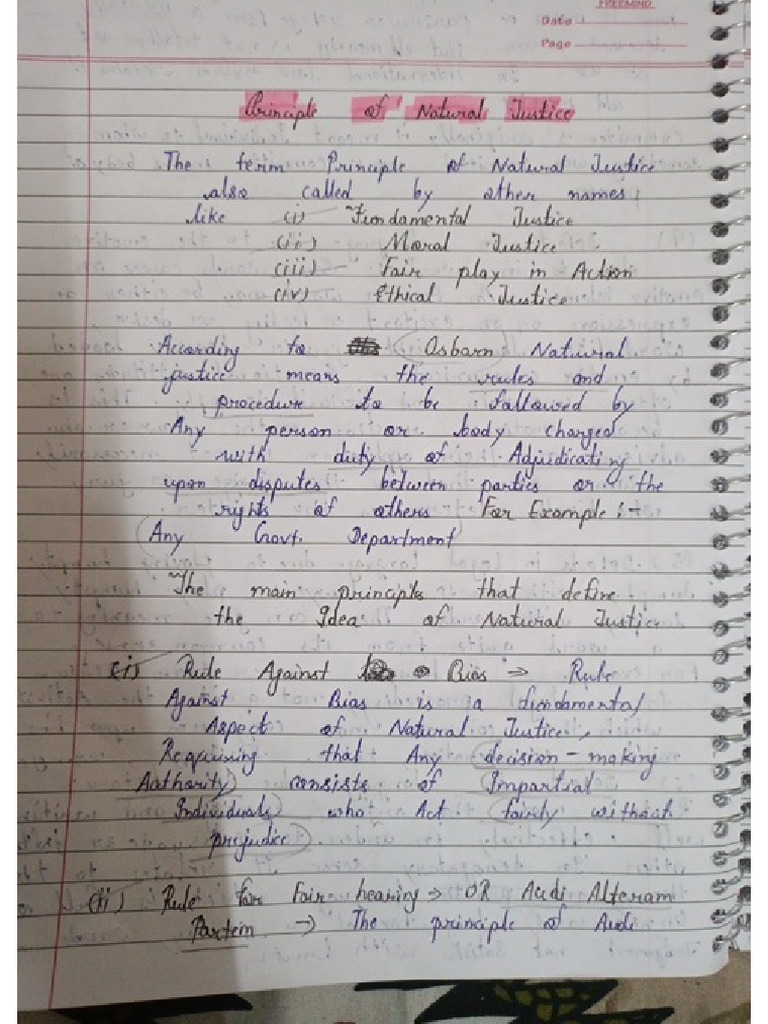 FREEMIND
Date
Page
Principle of Natural Justice
The term Principle of Natural Justice
also called by other names,
like (i) Fundamental Justice
(ii) Moral Justice
(iii) Fair play in Action
(iv) Ethical Justice
According to Osbarn Natural
justice means the rules and
procedure to be followed by
Any person or body charged
with duty of Adjudicating
upon disputes between parties or the
rights of others For Example :-
Any Govt. Department
The main principls that define
the Idea of Natural Justice
(i) Rule Against Bias → Rule
Against Bias is a fundamental
Aspect of Natural Justice,
Requiring that Any decision-making
Authority consists of Impartial
Individuals who Act fairly without
prejudice
(ii) Rule for Fair hearing → OR Audi Alteram
Partem → The principle of Audi